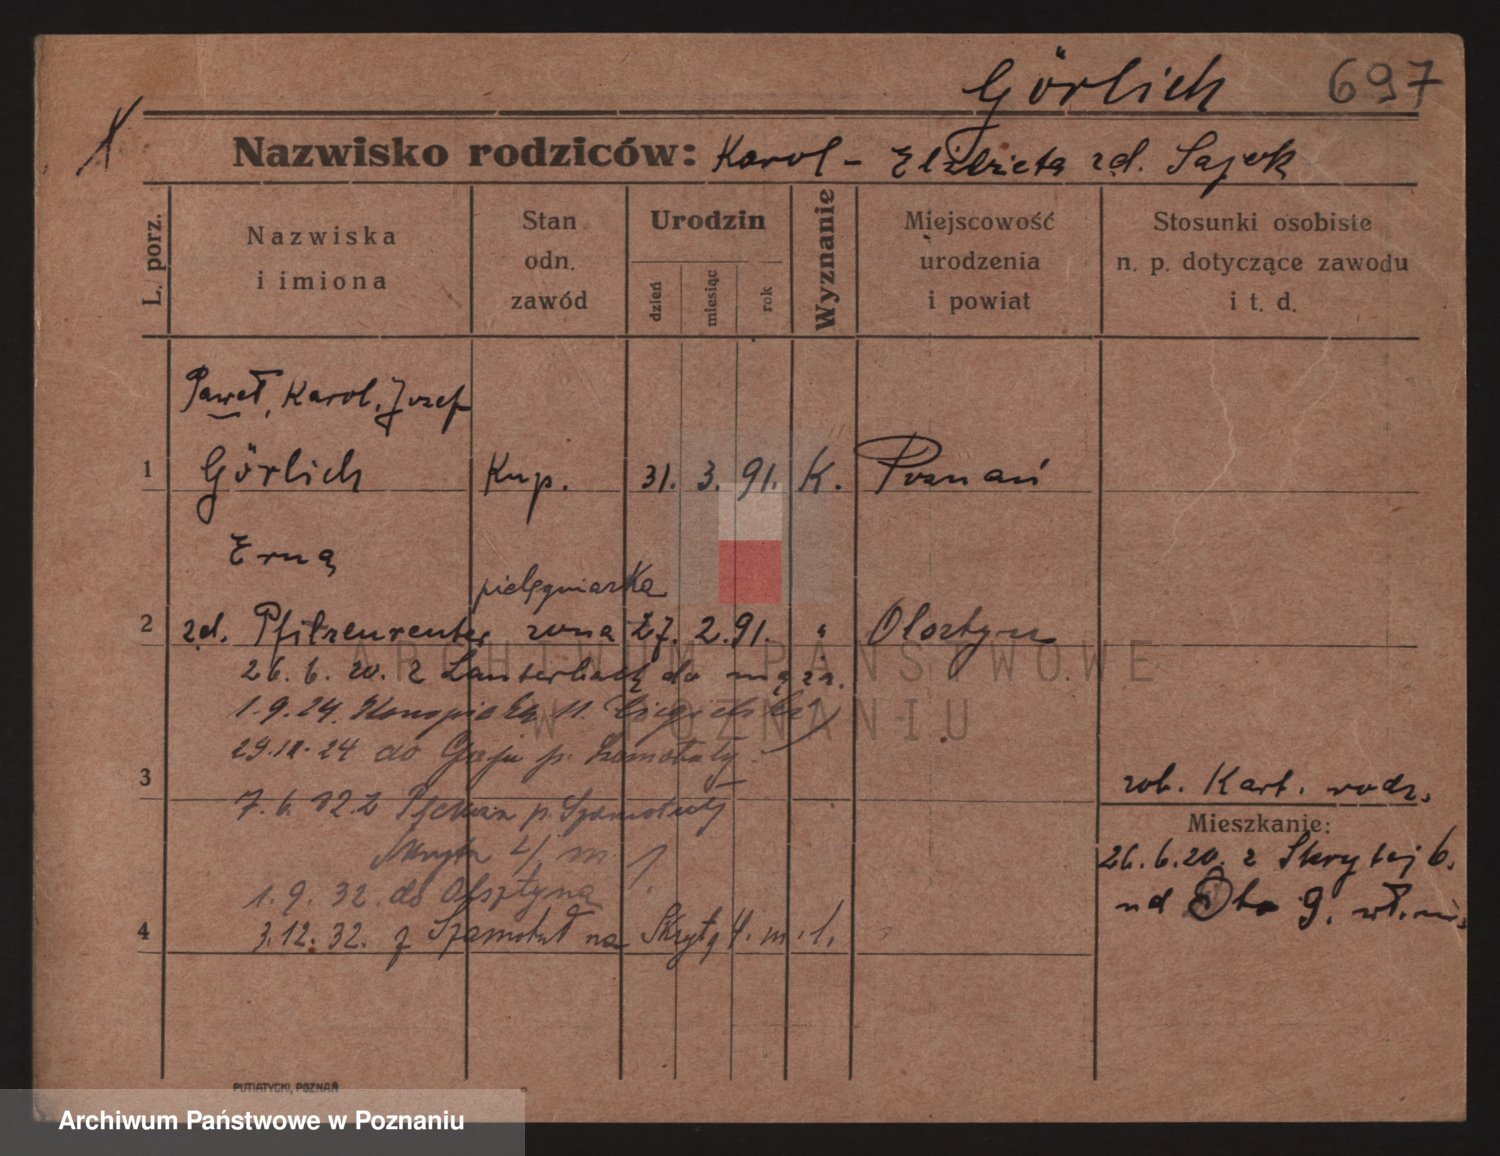 Görlich 697
Nazwisko rodziców: Karol – Elżbieta zd. Sajek
L. porz.
Nazwiska i imiona
Stan odn. zawód
Urodzin
dzień
miesiąc
rok
Wyznanie
Miejscowość urodzenia i powiat
Stosunki osobiste n. p. dotyczące zawodu i t. d.
Paweł, Karol, Jozef
1 Görlich Kup. 31. 3. 91. K. Poznań
Erna
pielęgniarka
2 zd. Pfitzenreuter żona 27. 2. 91. " Olsztyn
26. 6. 20. z do męża.
1.9.24.
29. 24 do Gaju p. Szamotuły
3
7. 6. 32 Z p. Szamotuły
m 1.
1. 9. 32. do Olsztyna
4 3.12. 32. z Szamotuł na Skrytą 4. m. 1.
zob. Kart. rodz.
Mieszkanie:
26.6.20. z Skrytej 6.
9.
PUTIATYCKI, POZNAŃ
ARCHIWUM PAŃSTWOWE
W POZNANIU
Archiwum Państwowe w Poznaniu